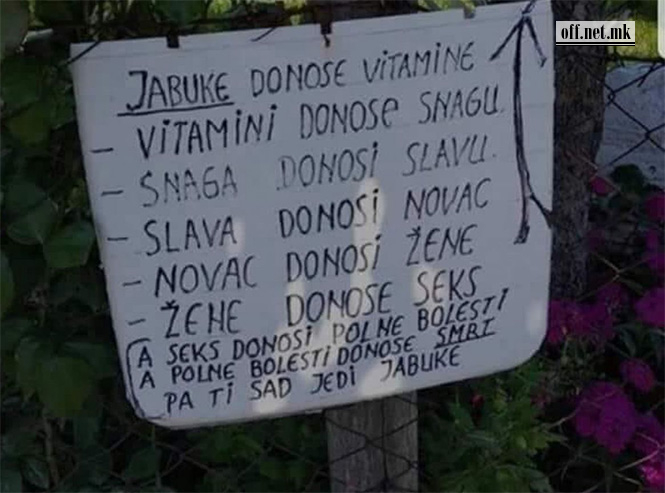 off.net.mk
JABUKE DONOSE VITAMINE
- VITAMINI DONOSE SNAGU
- SNAGA DONOSI SLAVU.
- SLAVA DONOSI NOVAC
- NOVAC DONOSI ŽENE
- ŽENE DONOSE SEKS
A SEKS DONOSI POLNE BOLESTI
A POLNE BOLESTI DONOSE SMRT
PA TI SAD JEDI JABUKE